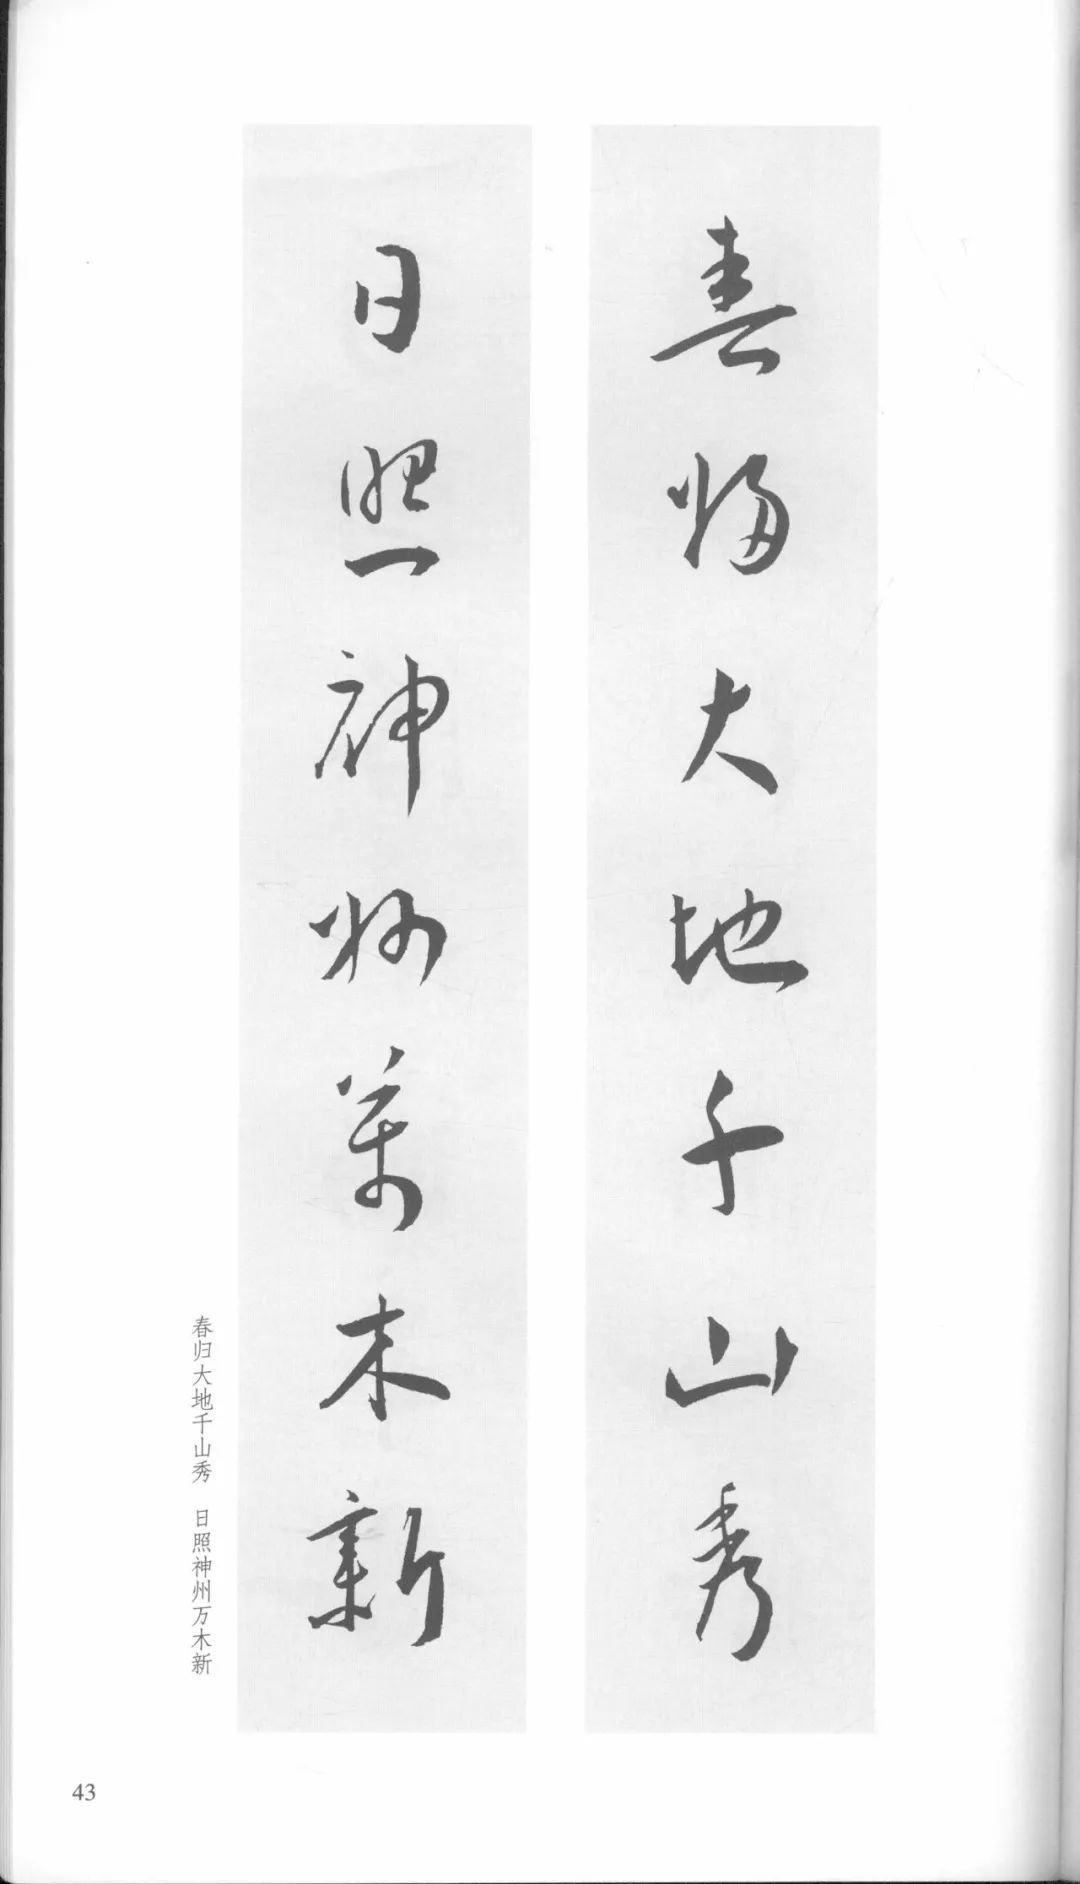 春歸大地千山秀
日照神州萬木新
春归大地千山秀 日照神州万木新
43